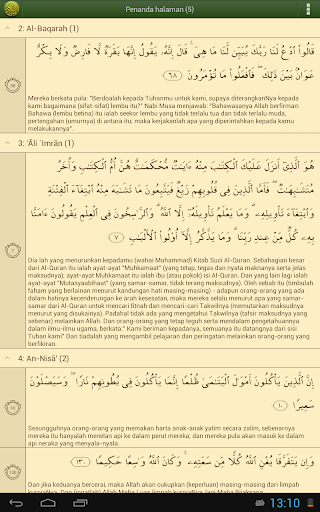 Penanda halaman (5)
2: Al-Baqarah (1)
قَالُوا۟ ٱدْعُ لَنَا رَبَّكَ يُبَيِّن لَّنَا مَا هِىَ ۚ قَالَ إِنَّهُۥ يَقُولُ إِنَّهَا بَقَرَةٌ لَّا فَارِضٌ وَلَا بِكْرٌ
عَوَانٌۢ بَيْنَ ذَٰلِكَ ۖ فَٱفْعَلُوا۟ مَا تُؤْمَرُونَ ٦٨
68
Mereka berkata pula: "Berdoalah kepada Tuhanmu untuk kami, supaya diterangkanNya kepada
kami bagaimana (sifat-sifat) lembu itu?" Nabi Musa menjawab: "Bahawasanya Allah berfirman:
Bahawa (lembu betina) itu ialah seekor lembu yang tidak terlalu tua dan tidak terlalu muda,
pertengahan (umurnya) di antara itu; maka kerjakanlah apa yang diperintahkan kepada kamu
melakukannya".
3: Āli `Imrān (1)
هُوَ ٱلَّذِىٓ أَنزَلَ عَلَيْكَ ٱلْكِتَٰبَ مِنْهُ ءَايَٰتٌ مُّحْكَمَٰتٌ هُنَّ أُمُّ ٱلْكِتَٰبِ وَأُخَرُ
مُتَشَٰبِهَٰتٌ ۖ فَأَمَّا ٱلَّذِينَ فِى قُلُوبِهِمْ زَيْغٌ فَيَتَّبِعُونَ مَا تَشَٰبَهَ مِنْهُ ٱبْتِغَآءَ ٱلْفِتْنَةِ
وَٱبْتِغَآءَ تَأْوِيلِهِۦ ۗ وَمَا يَعْلَمُ تَأْوِيلَهُۥٓ إِلَّا ٱللَّهُ ۗ وَٱلرَّٰسِخُونَ فِى ٱلْعِلْمِ يَقُولُونَ ءَامَنَّا
بِهِۦ كُلٌّ مِّنْ عِندِ رَبِّنَا ۗ وَمَا يَذَّكَّرُ إِلَّآ أُو۟لُوا۟ ٱلْأَلْبَٰبِ ٧
7
Dia lah yang menurunkan kepadamu (wahai Muhammad) Kitab Suci Al-Quran. Sebahagian besar
dari Al-Quran itu ialah ayat-ayat "Muhkamaat" (yang tetap, tegas dan nyata maknanya serta jelas
maksudnya); ayat-ayat Muhkamaat itu ialah ibu (atau pokok) isi Al-Quran. Dan yang lain lagi ialah
ayat-ayat "Mutasyaabihaat" (yang samar-samar, tidak terang maksudnya). Oleh sebab itu (timbulah
faham yang berlainan menurut kandungan hati masing-masing) - adapun orang-orang yang ada
dalam hatinya kecenderungan ke arah kesesatan, maka mereka selalu menurut apa yang samar-
samar dari Al-Quran untuk mencari fitnah dan mencari-cari Takwilnya (memutarkan maksudnya
menurut yang disukainya). Padahal tidak ada yang mengetahui Takwilnya (tafsir maksudnya yang
sebenar) melainkan Allah. Dan orang-orang yang tetap teguh serta mendalam pengetahuannya
dalam ilmu-ilmu ugama, berkata:" Kami beriman kepadanya, semuanya itu datangnya dari sisi
Tuhan kami" Dan tiadalah yang mengambil pelajaran dan peringatan melainkan orang-orang yang
berfikiran.
4: An-Nisā' (2)
إِنَّ ٱلَّذِينَ يَأْكُلُونَ أَمْوَٰلَ ٱلْيَتَٰمَىٰ ظُلْمًا إِنَّمَا يَأْكُلُونَ فِى بُطُونِهِمْ نَارًا ۖ وَسَيَصْلَوْنَ
سَعِيرًا ١٠
10
Sesungguhnya orang-orang yang memakan harta anak-anak yatim secara zalim, sebenarnya
mereka itu hanyalah menelan api ke dalam perut mereka; dan mereka pula akan masuk ke dalam
api neraka yang menyala-nyala.
وَإِن يَتَفَرَّقَا يُغْنِ ٱللَّهُ كُلًّا مِّن سَعَتِهِۦ ۚ وَكَانَ ٱللَّهُ وَٰسِعًا حَكِيمًا ١٣٠
130
Dan jika keduanya bercerai, maka Allah akan cukupkan (keperluan) masing-masing dari limpah
13:10